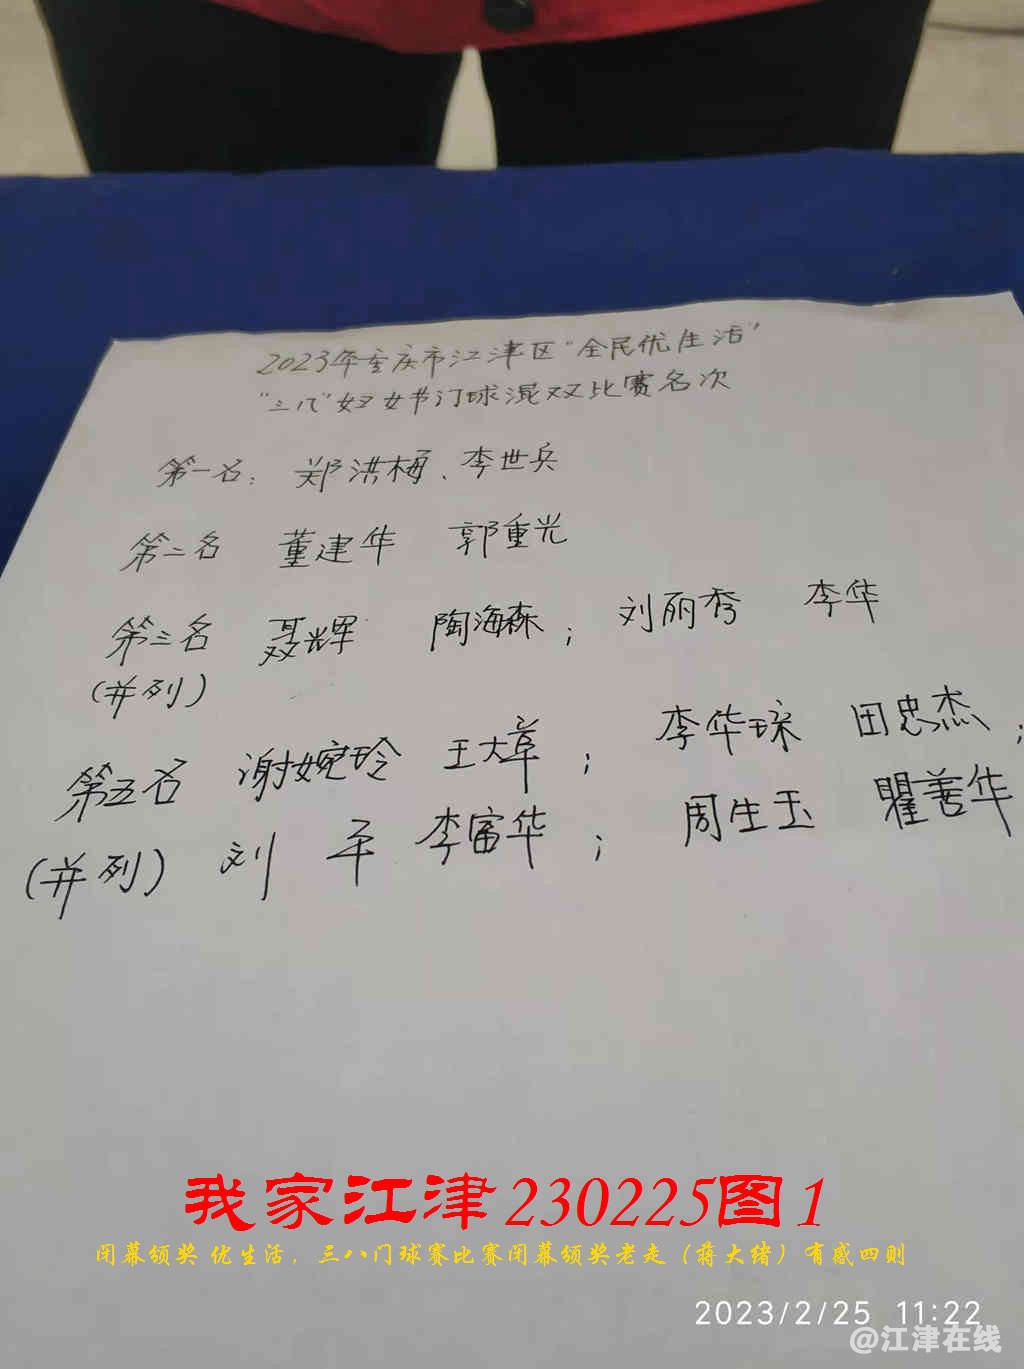 2023年重庆市江津区"全民优生活"
"三八"妇女节门球混双比赛名次
第一名：郑洪梅、李世兵
第二名 董建华 郭重光
第三名 聂辉 陶海森；刘丽秀 李华
(并列)
第五名 谢婉玲 王大章；李华琛 田忠杰；
(并列) 刘平 李富华；周生玉 瞿善华
我家江津230225图1
闭幕颁奖 优生活，三八门球赛比赛闭幕颁奖老走（蒋大绪）有感四则
2023/2/25 11:22
@江津在线